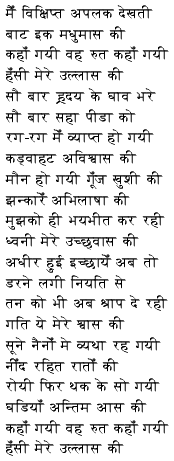 मैं विक्षिप्त अपलक देखती
बाट इक मधुमास की
कहाँ गयी वह रुत कहाँ गयी
हँसी मेरे उल्लास की
सौ बार ह्रदय के घाव भरे
सौ बार सहा पीडा को
रग-रग में व्याप्त हो गयी
कड़वाहट अविश्वास की
मौन हो गयी गूँज खुशी की
झन्कारें अभिलाषा की
मुझको ही भयभीत कर रही
ध्वनी मेरे उच्छवास की
अधीर हुई इच्छायें अब तो
डरने लगी नियति से
तन को भी अब श्राप दे रही
गति ये मेरे श्वास की
सूने नैनों मे व्यथा रह गयी
नींद रहित रातों की
रोयी फिर थक के सो गयी
घडियाँ अन्तिम आस की
कहाँ गयी वह रुत कहाँ गयी
हँसी मेरे उल्लास की